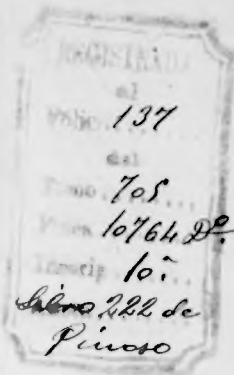 REGISTRADA
al
Folio 137
del
Tomo 705
Finca 10764 Dº.
Inscrip. 10ª
Libro 222 de
Pinoso